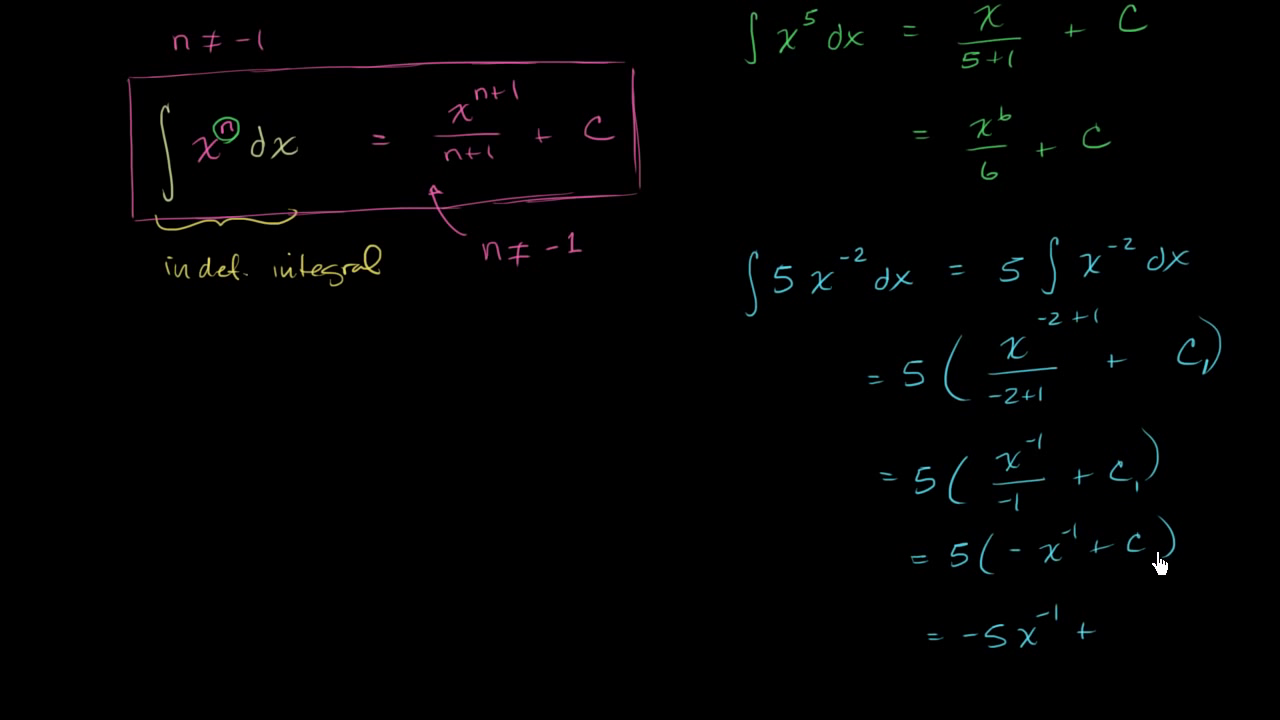 n ≠ -1
∫ xⁿ dx = xⁿ⁺¹/(n+1) + C
n ≠ -1
indef. integral
∫ x⁵ dx = x/(5+1) + C
= x⁶/6 + C
∫ 5 x⁻² dx = 5 ∫ x⁻² dx
= 5 ( x⁻²⁺¹/(-2+1) + C₁)
= 5 ( x⁻¹/-1 + C₁)
= 5 ( - x⁻¹ + C )
= -5x⁻¹ +